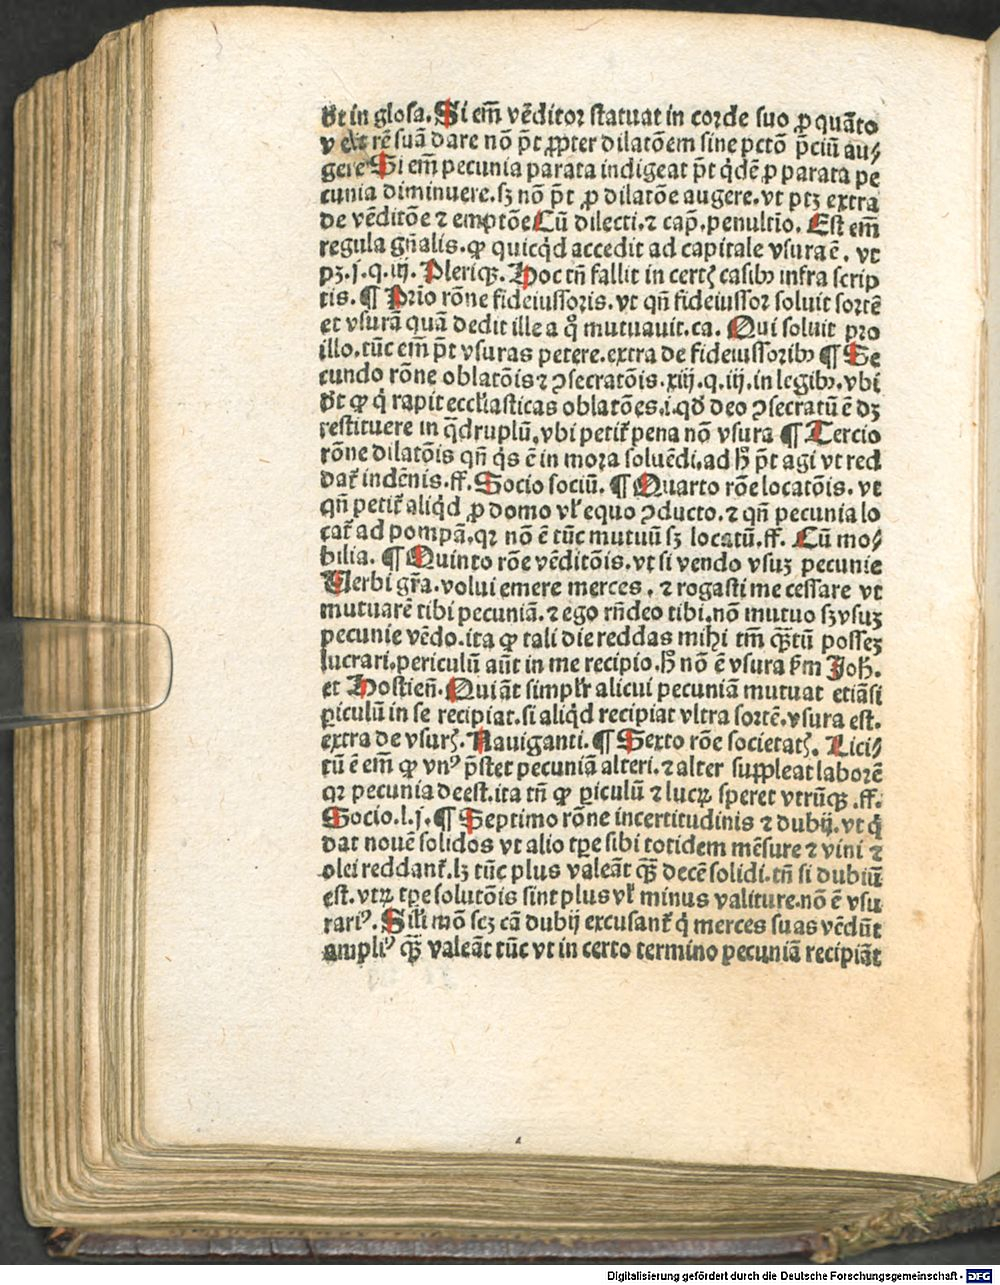 dꝉt in glosa. Si em̄ vēditor statuat in corde suo ꝓ quāto
v ex rē suā dare nō p̄t ꝓpter dilatōem sine pctō p̄ciū au⸗
gere Si em̄ pecunia parata indigeat p̄t qͥdē ꝓ parata pe
cunia diminuere. sꝫ nō p̄t ꝓ dilatōe augere. vt ptꝫ extra
de vēditōe ⁊ emptōe Cū dilecti. ⁊ cap̄. penultīo. Est em̄
regula gn̄alis. ꝙ quicqͥd accedit ad capitale vsura ē. vt
pꝫ. j. q. iij. Pleriqꝫ. Hoc tn̄ fallit in certꝭ casibꝰ infra scrip
tis. ¶ Prīo rōne fideiussoris. vt qn̄ fideiussor soluit sortē
et vsurā quā dedit ille a qͦ mutuauit. ca. Qui soluit pro
illo. tūc em̄ p̄t vsuras petere. extra de fideiussoribꝰ ¶ Se
cundo rōne oblatōis ⁊ ꝯsecratōis. xiij. q. iij. in legibꝰ. vbi
dꝉt ꝙ qͥ rapit ecclīasticas oblatōes. i. qď deo ꝯsecratū ē dꝫ
restituere in qͣdruplū. vbi petit᷑ pena nō vsura ¶ Tercio
rōne dilatōis qn̄ qͥs ē in mora soluēdi. ad ħ p̄t agi vt red
dat᷑ indēnis. ff. Socio sociū. ¶ Quarto rōe locatōis. vt
qn̄ petit᷑ aliqͥd ꝓ domo vꝉ equo ꝯducto. ⁊ qn̄ pecunia lo
cat᷑ ad pompā. qꝛ nō ē tūc mutuū sꝫ locatū. ff. Cū mo⸗
bilia. ¶ Quinto rōe vēditōis. vt si vendo vsuꝫ pecunie
Verbi gr̄a. volui emere merces. ⁊ rogasti me cessare vt
mutuarē tibi pecuniā. ⁊ ego rn̄deo tibi. nō mutuo sꝫ vsuꝫ
pecunie vēdo. ita ꝙ tali die reddas mihi tm̄ qͣꝫtū posseꝫ
lucrari. periculū aūt in me recipio. ħ nō ē vsura ẜm Joh̄.
et Hostien̄. Qui āt simplr̄ alicui pecuniā mutuat etiāsi
ꝑiculū in se recipiat. si aliqͥd recipiat vltra sortē. vsura est.
extra de vsurꝭ. Nauiganti. ¶ Sexto rōe societatꝭ. Lici⸗
tū ē em̄ ꝙ vnꝰ p̄stet pecuniā alteri. ⁊ alter suppleat laborē
qꝛ pecunia deest. ita tn̄ ꝙ ꝑiculū ⁊ lucꝝ speret vtrūqꝫ. ff.
Socio. l. j. ¶ Septimo rōne incertitudinis ⁊ dubij. vt qͥ
dat nouē solidos vt alio tꝑe sibi totidem mēsure ⁊ vini ⁊
olei reddant᷑. lꝫ tūc plus valeāt qͣꝫ decē solidi. tn̄ si dubiū
est. vtꝝ tꝑe solutōis sint plus vꝉ minus valiture. nō ē vsu
rariꝰ. Silī mō scꝫ cā dubij excusant᷑ qͥ merces suas vēdūt
ampliꝰ qͣꝫ valeāt tūc vt in certo termino pecuniā recipiāt
Digitalisierung gefördert durch die Deutsche Forschungsgemeinschaft - DFG